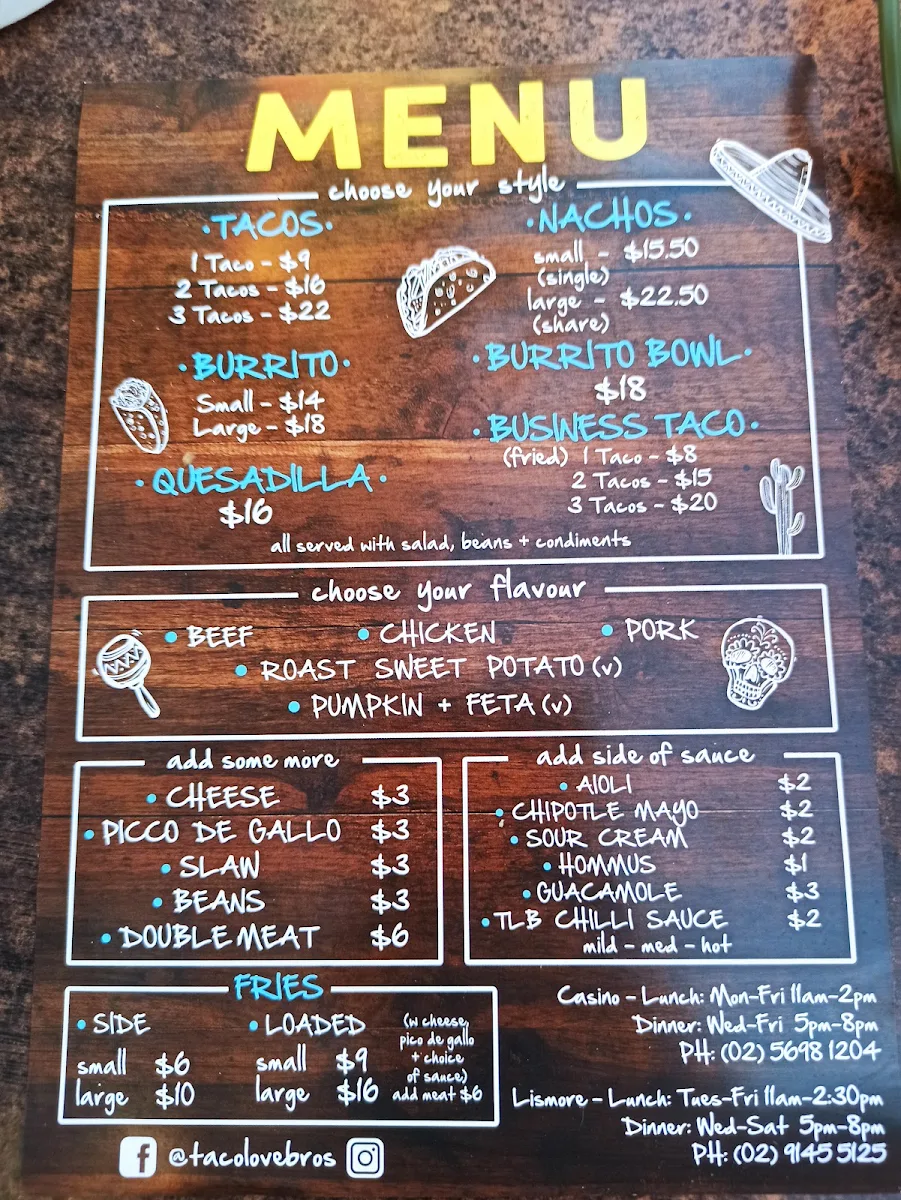 MENU
choose your style
·TACOS·
1 Taco - $9
2 Tacos - $16
3 Tacos - $22
·NACHOS·
small - $15.50
(single)
large - $22.50
(share)
·BURRITO·
Small - $14
Large - $18
·BURRITO BOWL·
$18
·QUESADILLA·
$16
·BUSINESS TACO·
(fried) 1 Taco - $8
2 Tacos - $15
3 Tacos - $20
all served with salad, beans + condiments
choose your flavour
• BEEF • CHICKEN • PORK
• ROAST SWEET POTATO (v)
• PUMPKIN + FETA (v)
add some more
• CHEESE $3
• PICCO DE GALLO $3
• SLAW $3
• BEANS $3
• DOUBLE MEAT $6
add side of sauce
• AIOLI $2
• CHIPOTLE MAYO $2
• SOUR CREAM $2
• HOMMUS $1
• GUACAMOLE $3
• TLB CHILLI SAUCE $2
mild - med - hot
FRIES
• SIDE
small $6
large $10
• LOADED
small $9
large $16
(w cheese,
pico de gallo
+ choice
of sauce)
add meat $6
Casino - Lunch: Mon-Fri 11am-2pm
Dinner: Wed-Fri 5pm-8pm
PH: (02) 5698 1204
Lismore - Lunch: Tues-Fri 11am-2:30pm
Dinner: Wed-Sat 5pm-8pm
PH: (02) 9145 5125
f @tacolovebros